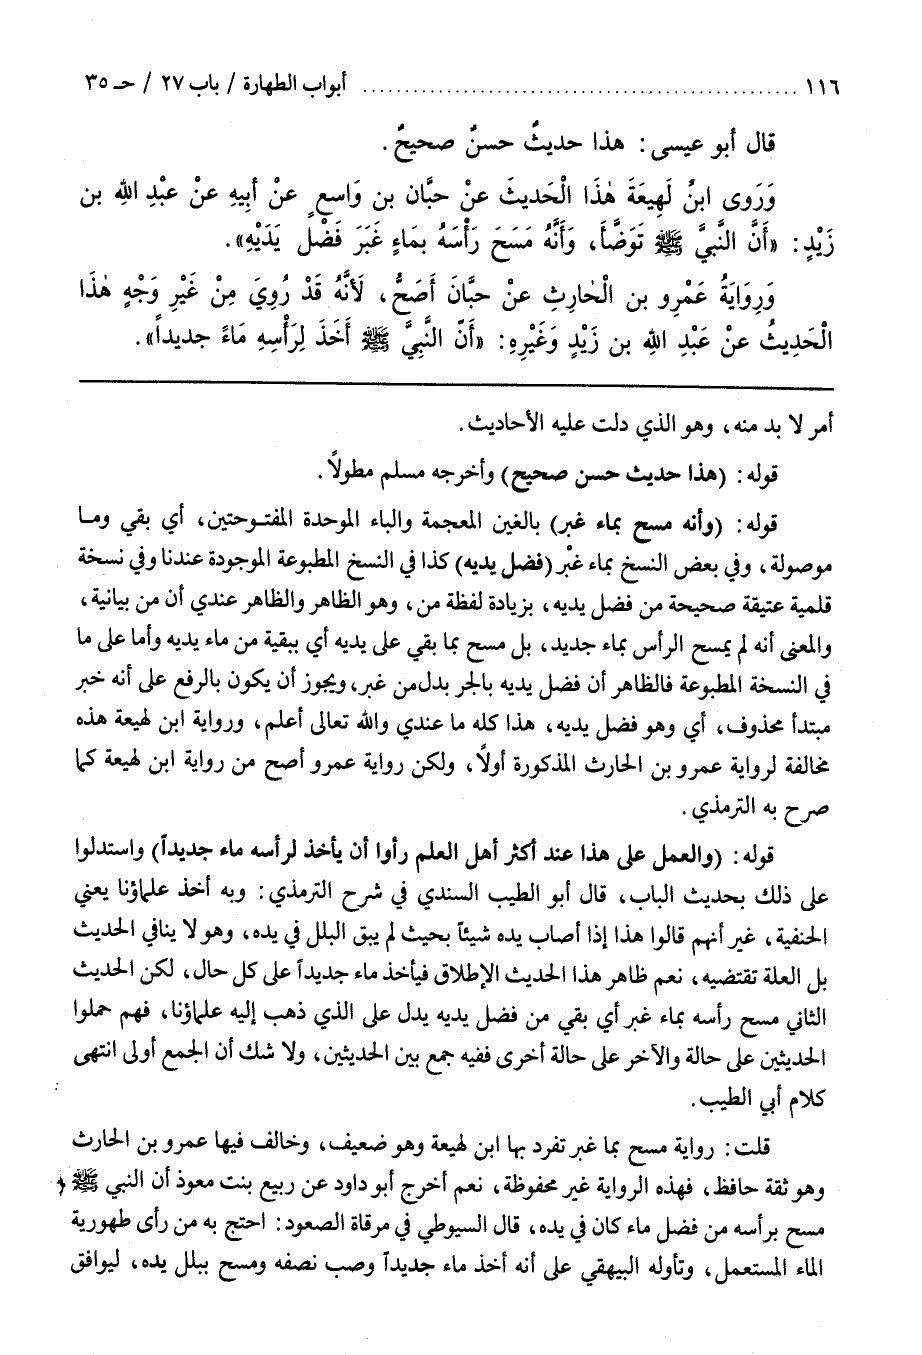 ١١٦ ........................................ أبواب الطهارة / باب ٢٧ / حـ ٣٥
قال أبو عيسى: هذا حديثٌ حسنٌ صحيحٌ.
وَرَوى ابنُ لَهِيعَةَ هٰذَا الْحَديثَ عنْ حبَّان بن وَاسعٍ عنْ أبيهِ عنْ عبْدِ الله بن
زَيْدٍ: «أَنَّ النَّبيَّ ﷺ تَوَضَّأَ، وَأَنَّهُ مَسَحَ رَأْسَهُ بمَاءٍ غَبَرَ فَضْل يَدَيْهِ».
وَرِوَايَةُ عَمْرِو بن الْحٰارِثِ عنْ حبَّانَ أَصَحُّ، لَأنَّهُ قَدْ رُوِيَ مِنْ غَيْرِ وَجْهٍ هٰذَا
الْحَدِيثُ عنْ عَبْدِ اللهِ بن زَيْدٍ وَغَيْرِهِ: «أَنّ النَّبيَّ ﷺ أَخَذَ لِرَأْسِهِ مَاءً جديداً».
أمر لا بد منه، وهو الذي دلت عليه الأحاديث.
قوله: (هذا حديث حسن صحيح) وأخرجه مسلم مطولاً.
قوله: (وأنه مسح بماء غبر) بالغين المعجمة والباء الموحدة المفتـوحتين، أي بقي ومـا
موصولة، وفي بعض النسخ بماء غبْر (فضل يديه) كذا في النسخ المطبوعة الموجودة عندنا وفي نسخة
قلمية عتيقة صحيحة من فضل يديه، بزيادة لفظة من، وهو الظاهر والظاهر عندي أن من بيانية،
والمعنى أنه لم يمسح الرأس بماء جديد، بل مسح بما بقي على يديه أي ببقية من ماء يديه وأما على ما
في النسخة المطبوعة فالظاهر أن فضل يديه بالجر بدل من غبر، ويجوز أن يكون بالرفع على أنه خبر
مبتدأ محذوف، أي وهو فضل يديه، هذا كله ما عندي والله تعالى أعلم، ورواية ابن لهيعة هذه
مخالفة لرواية عمرو بن الحارث المذكورة أولاً، ولكن رواية عمرو أصح من رواية ابن لهيعة كما
صرح به الترمذي.
قوله: (والعمل على هذا عند أكثر أهل العلم رأوا أن يأخذ لرأسه ماء جديداً) واستدلوا
على ذلك بحديث الباب، قال أبو الطيب السندي في شرح الترمذي: وبه أخذ علماؤنا يعني
الحنفية، غير أنهم قالوا هذا إذا أصاب يده شيئاً بحيث لم يبق البلل في يده، وهو لا ينافي الحديث
بل العلة تقتضيه، نعم ظاهر هذا الحديث الإطلاق فيأخذ ماء جديداً على كل حال، لكن الحديث
الثاني مسح رأسه بماء غبر أي بقي من فضل يديه يدل على الذي ذهب إليه علماؤنا، فهم حملوا
الحديثين على حالة والآخر على حالة أخرى ففيه جمع بين الحديثين، ولا شك أن الجمع أولى انتهى
كلام أبي الطيب.
قلت: رواية مسح بما غبر تفرد بها ابن لهيعة وهو ضعيف، وخالف فيها عمرو بن الحارث
وهو ثقة حافظ، فهذه الرواية غير محفوظة، نعم أخرج أبو داود عن ربيع بنت معوذ أن النبي ﷺ
مسح برأسه من فضل ماء كان في يده، قال السيوطي في مرقاة الصعود: احتج به من رأى طهورية
الماء المستعمل، وتأوله البيهقي على أنه أخذ ماء جديداً وصب نصفه ومسح ببلل يده، ليوافق